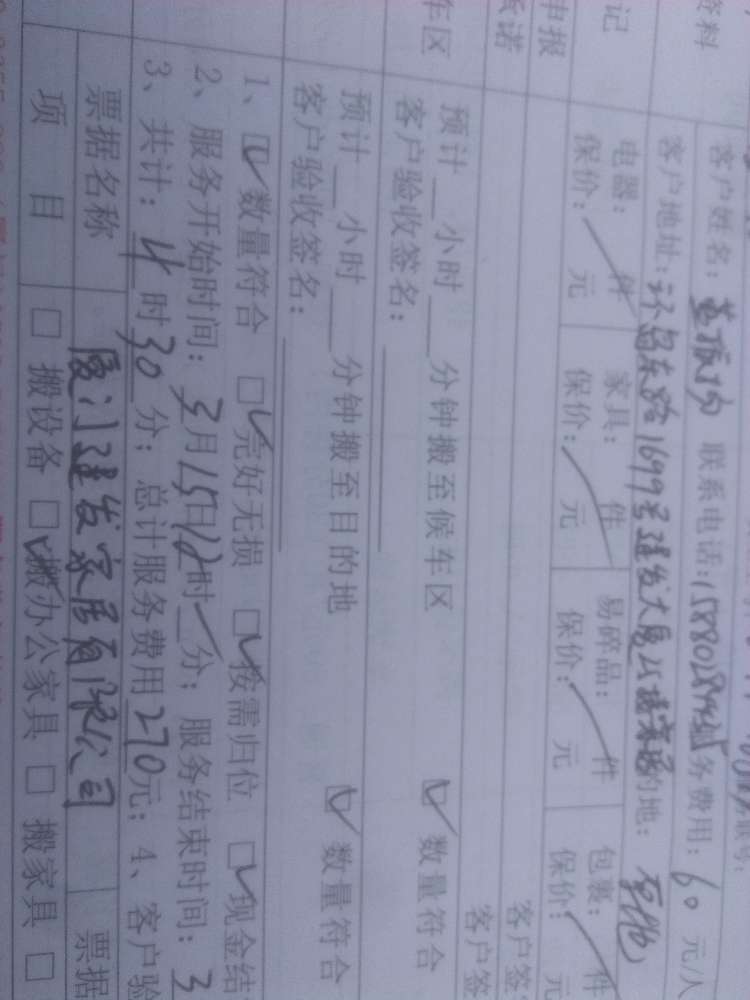 资料
客户姓名： 联系电话： 务费用：60元/人
客户地址：环岛东路1699号建发大厦 的地：
记
电器： 件 家具： 件 易碎品： 件 包裹： 件
保价： 元 保价： 元 保价： 元 保价： 元
申报
客户签
承诺
客户签
车区
预计 小时 分钟搬至候车区 数量符合
客户验收签名：
预计 小时 分钟搬至目的地 数量符合
客户验收签名：
1、☑数量符合 ☑完好无损 ☑按需归位 ☑现金结
2、服务开始时间：3月15日12时 分；服务结束时间：3
3、共计：4时30分；总计服务费用270元；4、客户验
票据名称 厦门建发家居有限公司 票据
项 目 □ 搬设备 ☑搬办公家具 □ 搬家具 □